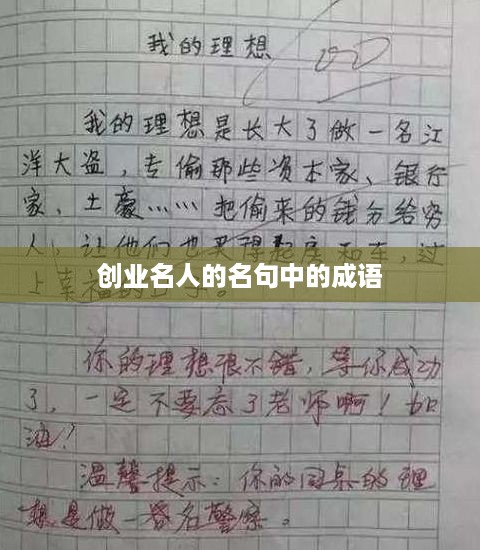 我的理想
我的理想是长大了做一名江
洋大盗，专偷那些资本家、银行
家、土豪……把偷来的钱分给穷
人，让他们也买得起房和车，过
创业名人的名句中的成语
上幸福的日子。
你的理想很不错，等你成功
了，一定不要忘了老师啊！加
油！
温馨提示：你的同桌的理
想是做一名警察。